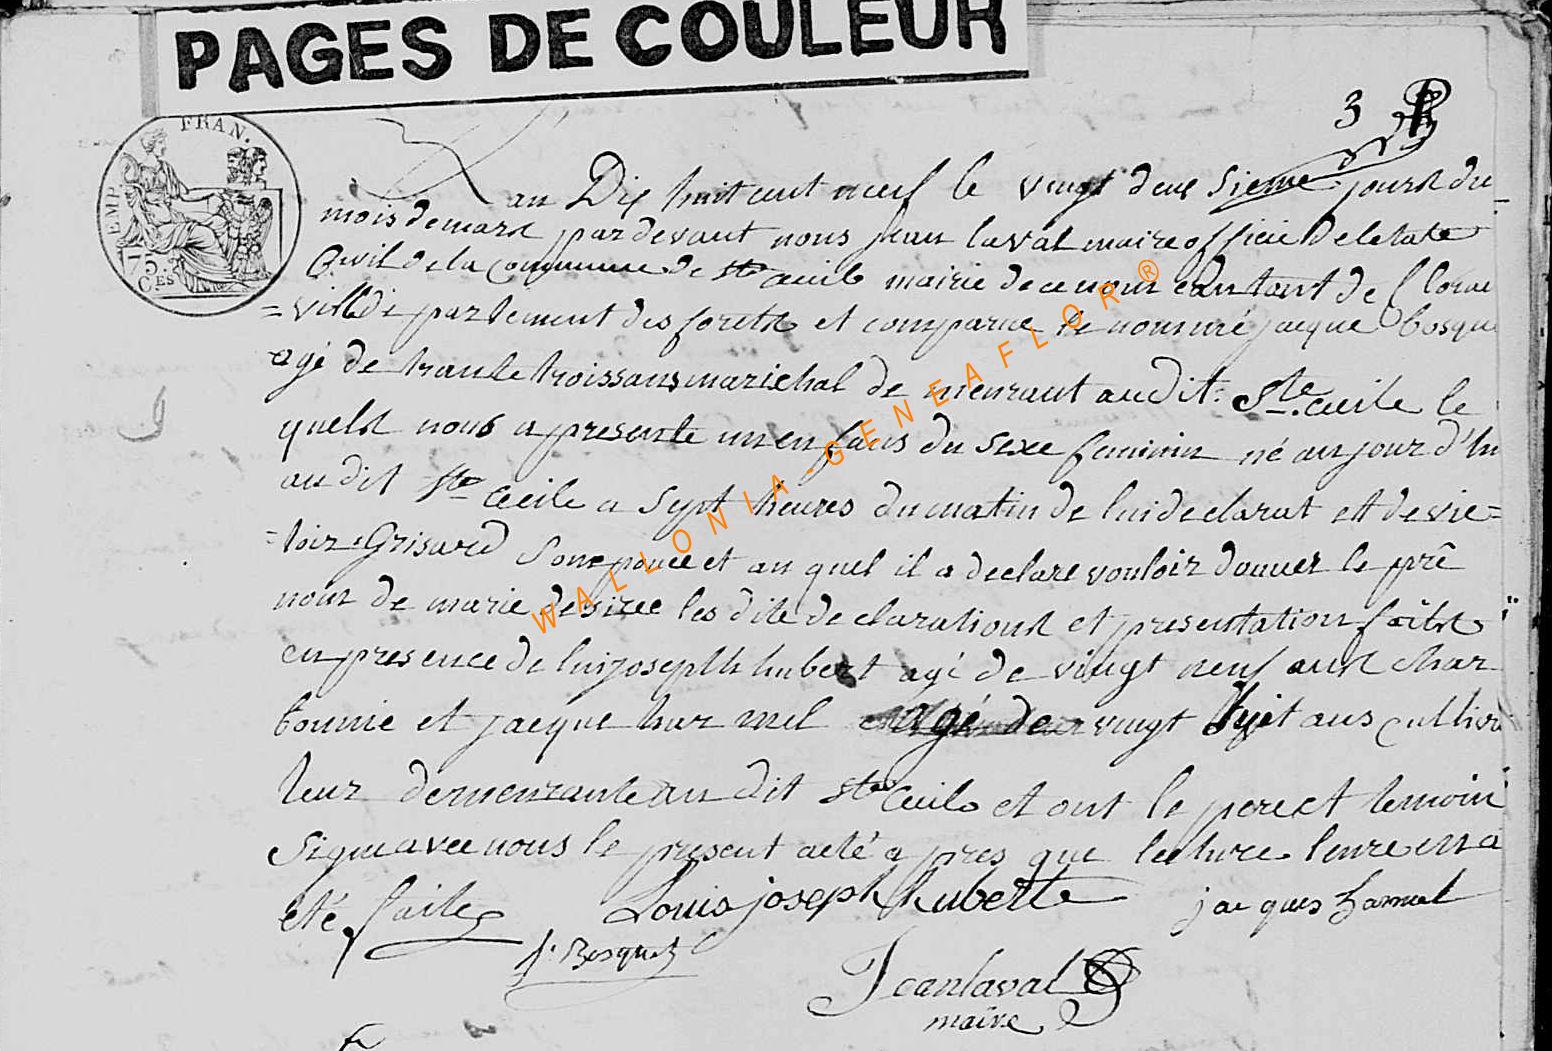 PAGES DE COULEUR
3
EMP. FRAN.
75
CES
Lan Dix huit cent neuf le vingt deux sieme jourst du
mois de marst pardevant nous jean laval maire officié Deletate
Civil de la commune de Ste Cecile mairie de ce nom canton de floran
=ville département des forets et comparue le nommé jacque bosque
agé de trante troissans marichal de meurant audit Ste Cecile le
quelst nous a presente un enfans du sexe feminin né aujour d'hu
au dit Ste Cecile a sept heures du matin de lui declarat ett de vic=
=toir Grisard Son epouce et au quel il a declare vouloir donner le prê
nom de marie desiree les dite declarationst et presentation faitst
en presence de luijoseph hubert agé de vingt neuf anst char
bonnie et jacque har mel agé de vingt huit ans cultiva
teur demeurante au dit Ste Cecile et ont le pere et temoin
signe avec nous le present acté a pres que lecture leure en a
été faite
Louis joseph hubertte
jacques harmel
j. Bosquet
Jean laval
maire
WALLONIA-GENEAFLOR®